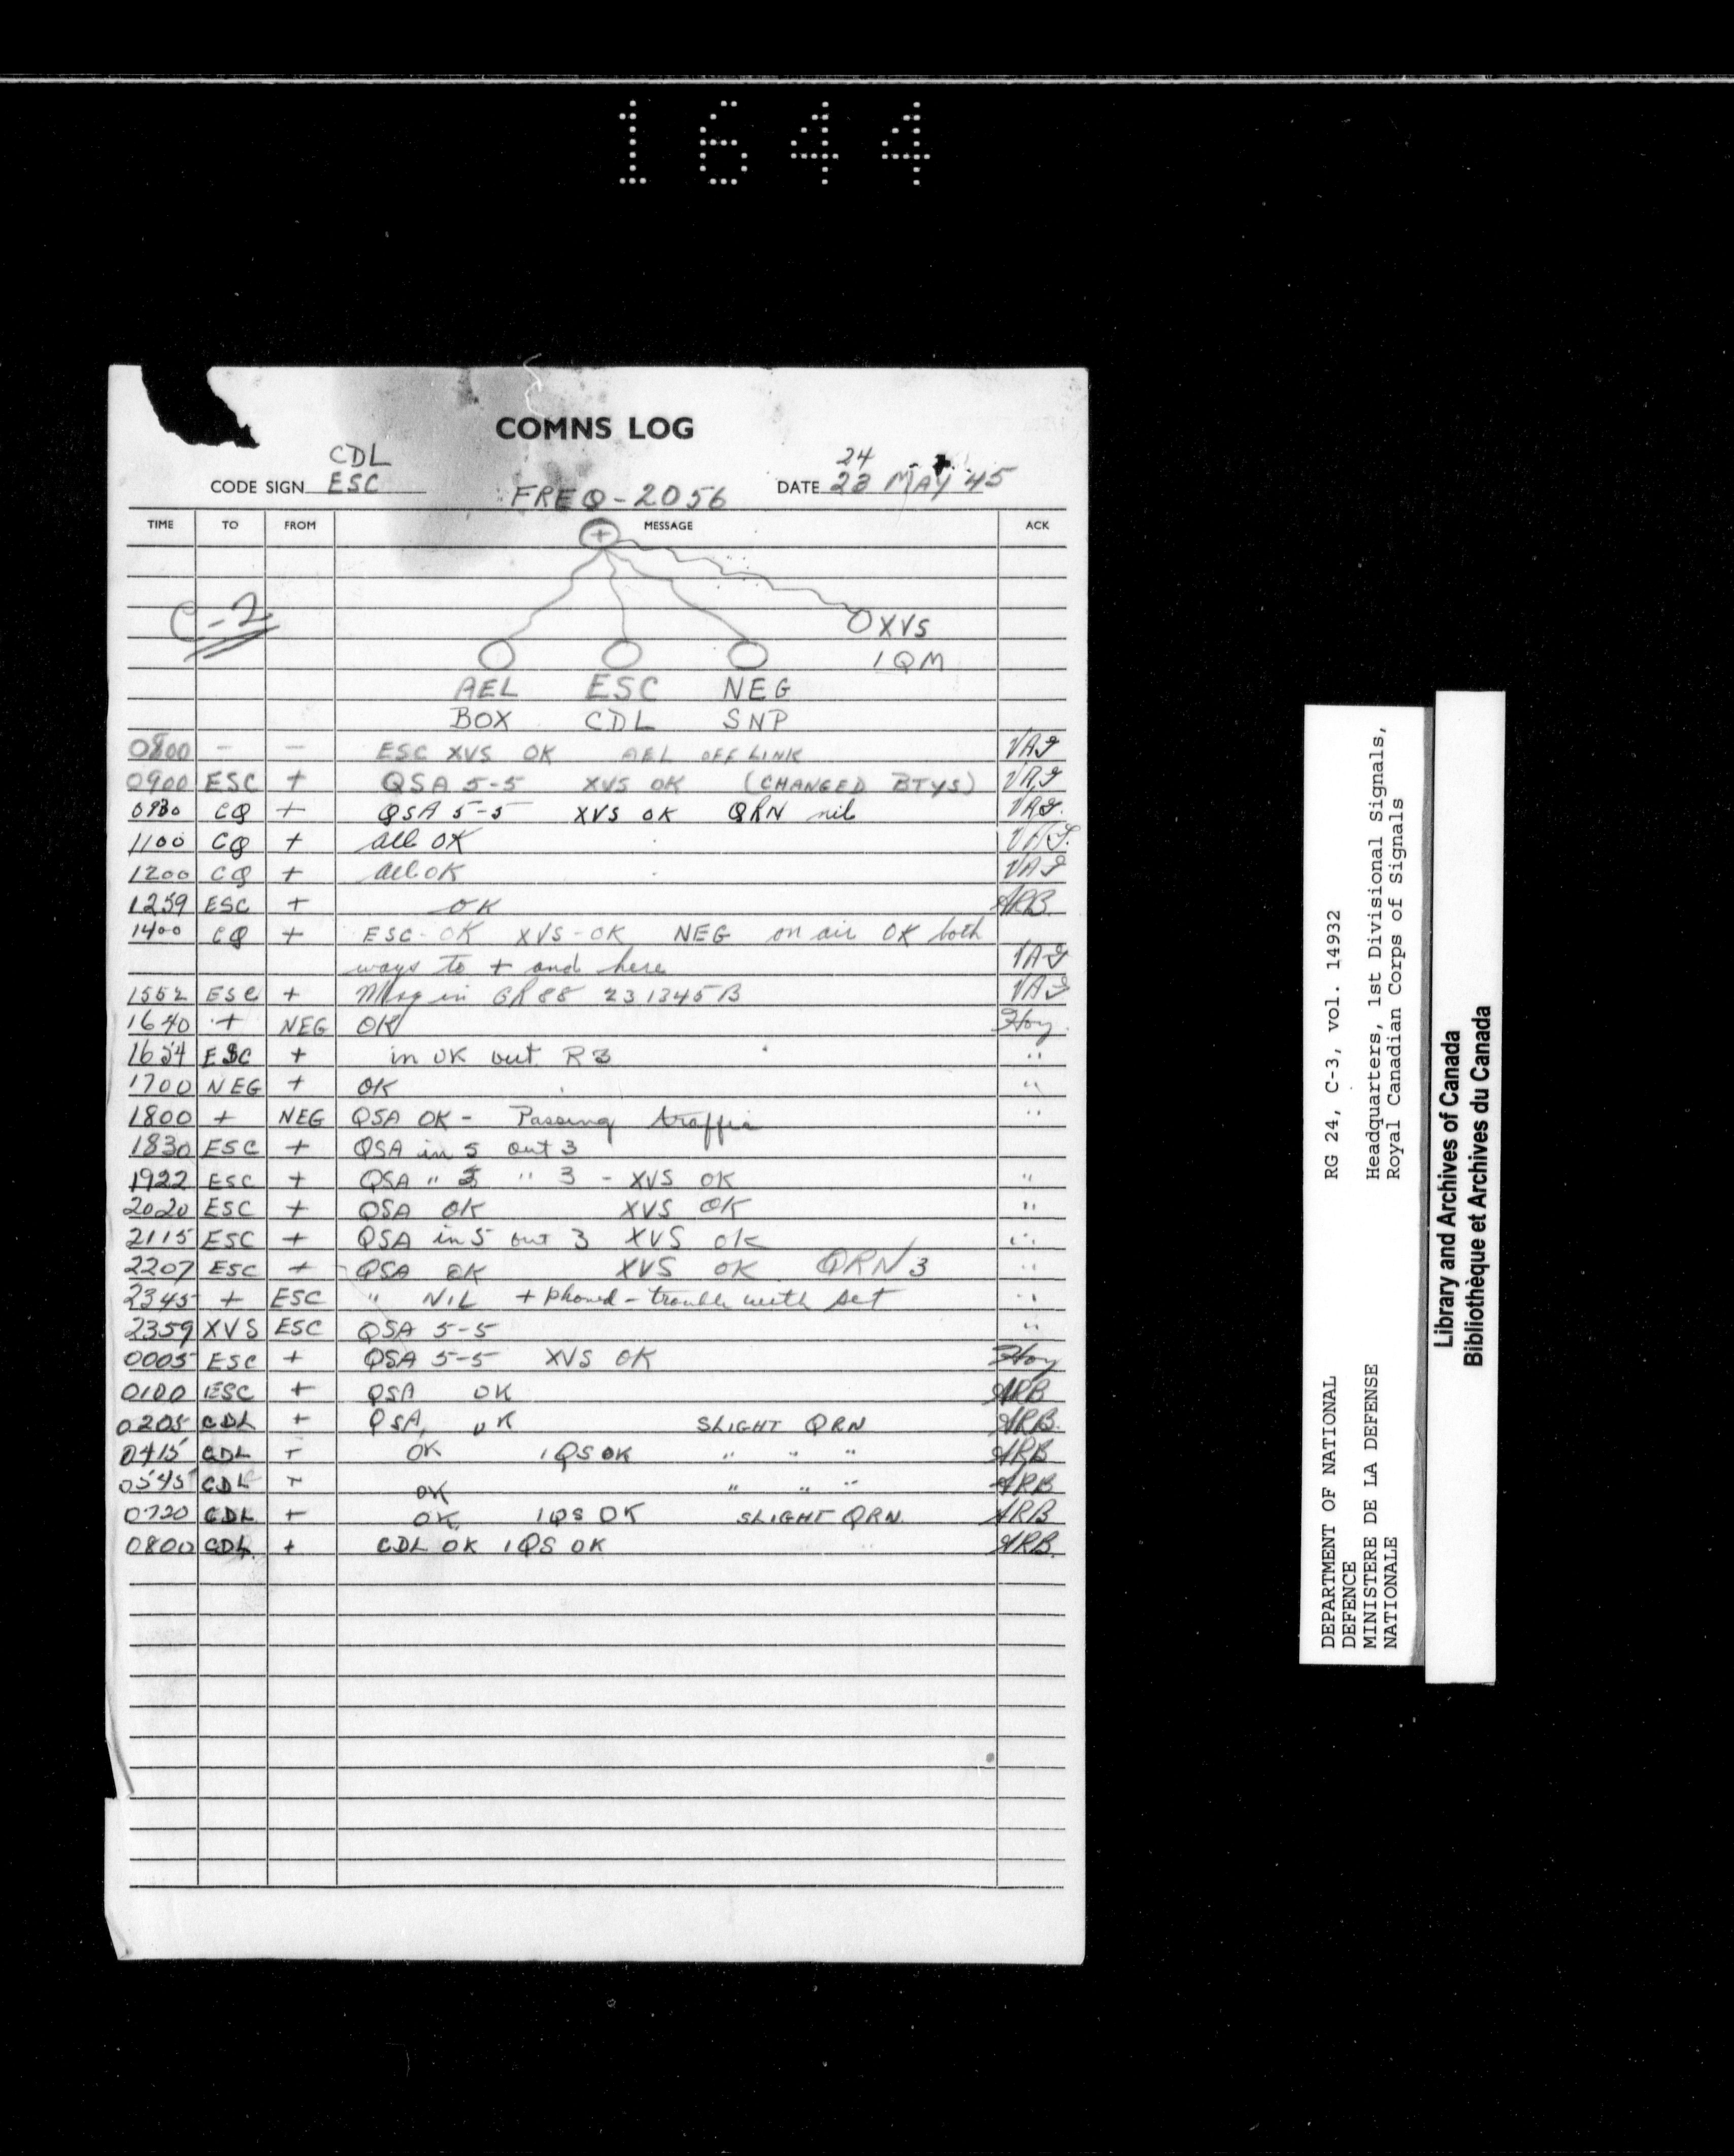 1644
COMNS LOG
CDL
24
CODE SIGN ESC
FREQ-2056
DATE 23 MAY 45
TIME TO FROM MESSAGE ACK
+
C-2
XVS
1QM
AEL ESC NEG
BOX CDL SNP
0800 - - ESC XVS OK AEL OFF LINK
0900 ESC + QSA 5-5 XVS OK (CHANGED BTYS)
0930 CQ + QSA 5-5 XVS OK QRN nil
1100 CQ + all OK
1200 CQ + all OK
1259 ESC + OK ARB
1400 CQ + ESC-OK XVS-OK NEG on air OK both
ways to + and here
1552 ESC + Msg in GR 88 231345B
1640 + NEG OK Hoy
1654 ESC + in OK out R3 "
1700 NEG + OK "
1800 + NEG QSA OK - Passing traffic "
1830 ESC + QSA in 5 out 3
1922 ESC + QSA " 5 " 3 - XVS OK "
2020 ESC + QSA OK XVS OK "
2115 ESC + QSA in 5 out 3 XVS ok "
2207 ESC + QSA OK XVS OK QRN 3 "
2345 + ESC " NIL + phoned - trouble with set "
2359 XVS ESC QSA 5-5 "
0005 ESC + QSA 5-5 XVS OK Hoy
0100 ESC + QSA OK ARB
0205 CDL + QSA, OK SLIGHT QRN ARB.
0415 CDL + OK 1QS OK " " " ARB
0545 CDL + OK " " " ARB
0720 CDL + OK 1QS OK SLIGHT QRN. ARB
0800 CDL + CDL OK 1QS OK ARB.
RG 24, C-3, vol. 14932
Headquarters, 1st Divisional Signals,
Royal Canadian Corps of Signals
DEPARTMENT OF NATIONAL
DEFENCE
MINISTERE DE LA DEFENSE
NATIONALE
Library and Archives of Canada
Bibliothèque et Archives du Canada